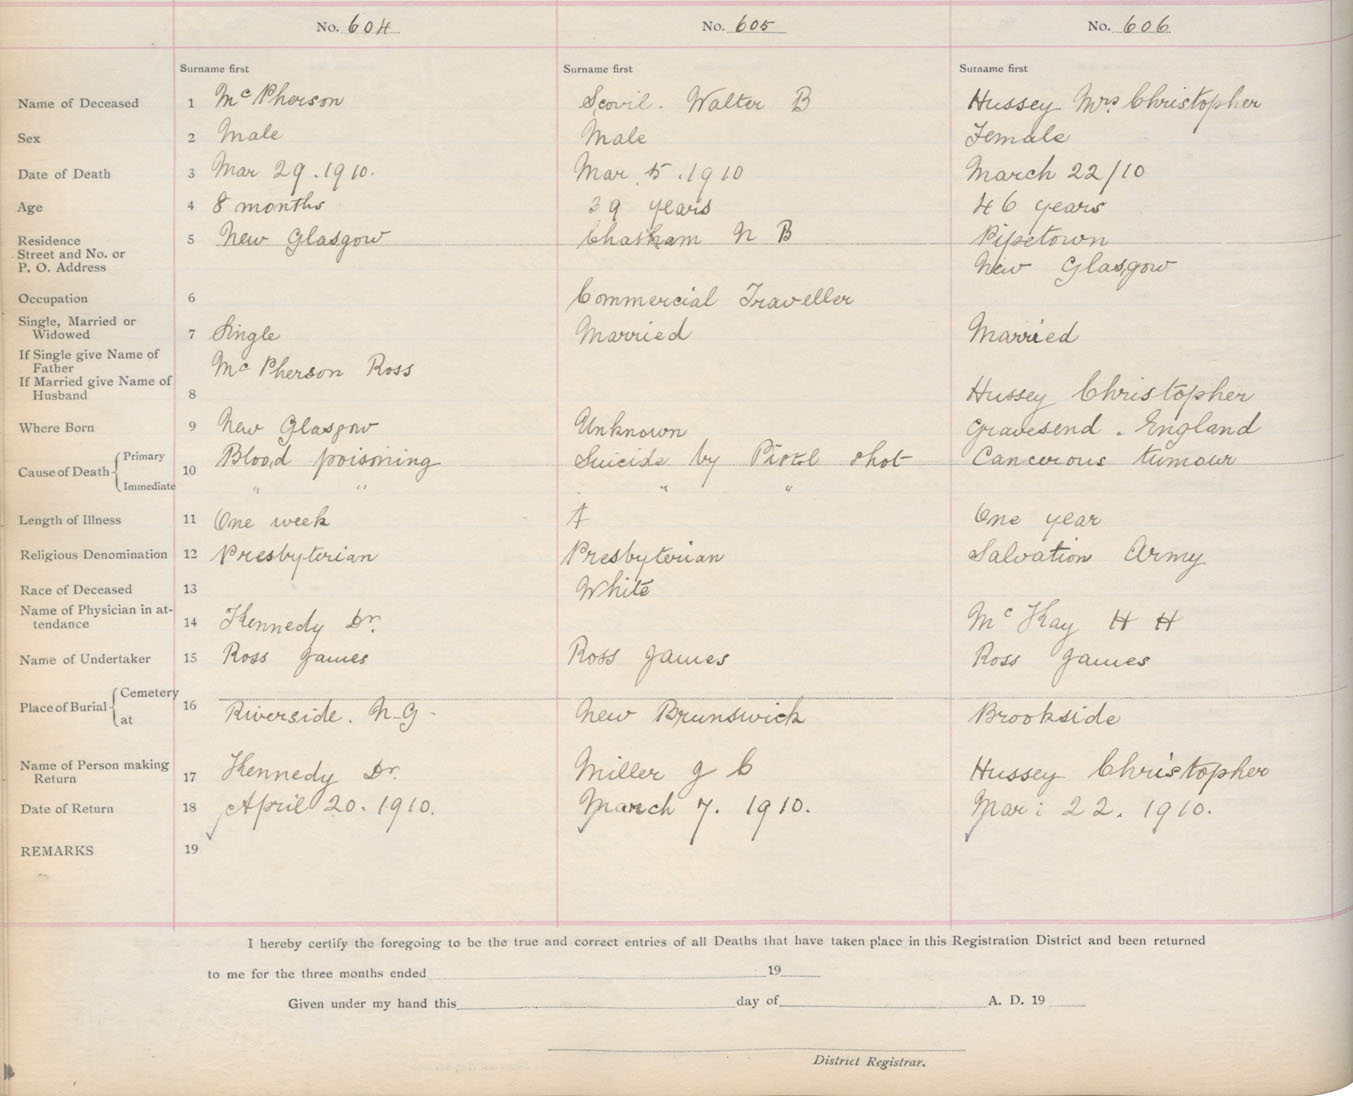 No. 604 No. 605 No. 606
Surname first Surname first Surname first
Name of Deceased 1 McPherson Scovil. Walter B Hussey Mrs Christopher
Sex 2 Male Male Female
Date of Death 3 Mar 29. 1910. Mar. 5. 1910 March 22/10
Age 4 8 months 39 years 46 years
Residence 5 New Glasgow Chatham N B Pipetown
Street and No. or
P. O. Address New Glasgow
Occupation 6 Commercial Traveller
Single, Married or
Widowed 7 Single Married Married
If Single give Name of
Father McPherson Ross
If Married give Name of
Husband 8 Hussey Christopher
Where Born 9 New Glasgow Unknown Gravesend. England
Cause of Death Primary 10 Blood poisoning Suicide by Pistol shot Cancerous tumour
Immediate " " " "
Length of Illness 11 One week One year
Religious Denomination 12 Presbyterian Presbyterian Salvation Army
Race of Deceased 13 White
Name of Physician in at-
tendance 14 Kennedy Dr. McKay H H
Name of Undertaker 15 Ross James Ross James Ross James
Place of Burial Cemetery 16
at Riverside. N-G- New Brunswick Brookside
Name of Person making
Return 17 Kennedy Dr. Miller J C Hussey Christopher
Date of Return 18 April 20. 1910. March 7. 1910. Mar: 22. 1910.
REMARKS 19
I hereby certify the foregoing to be the true and correct entries of all Deaths that have taken place in this Registration District and been returned
to me for the three months ended 19
Given under my hand this day of A. D. 19
District Registrar.